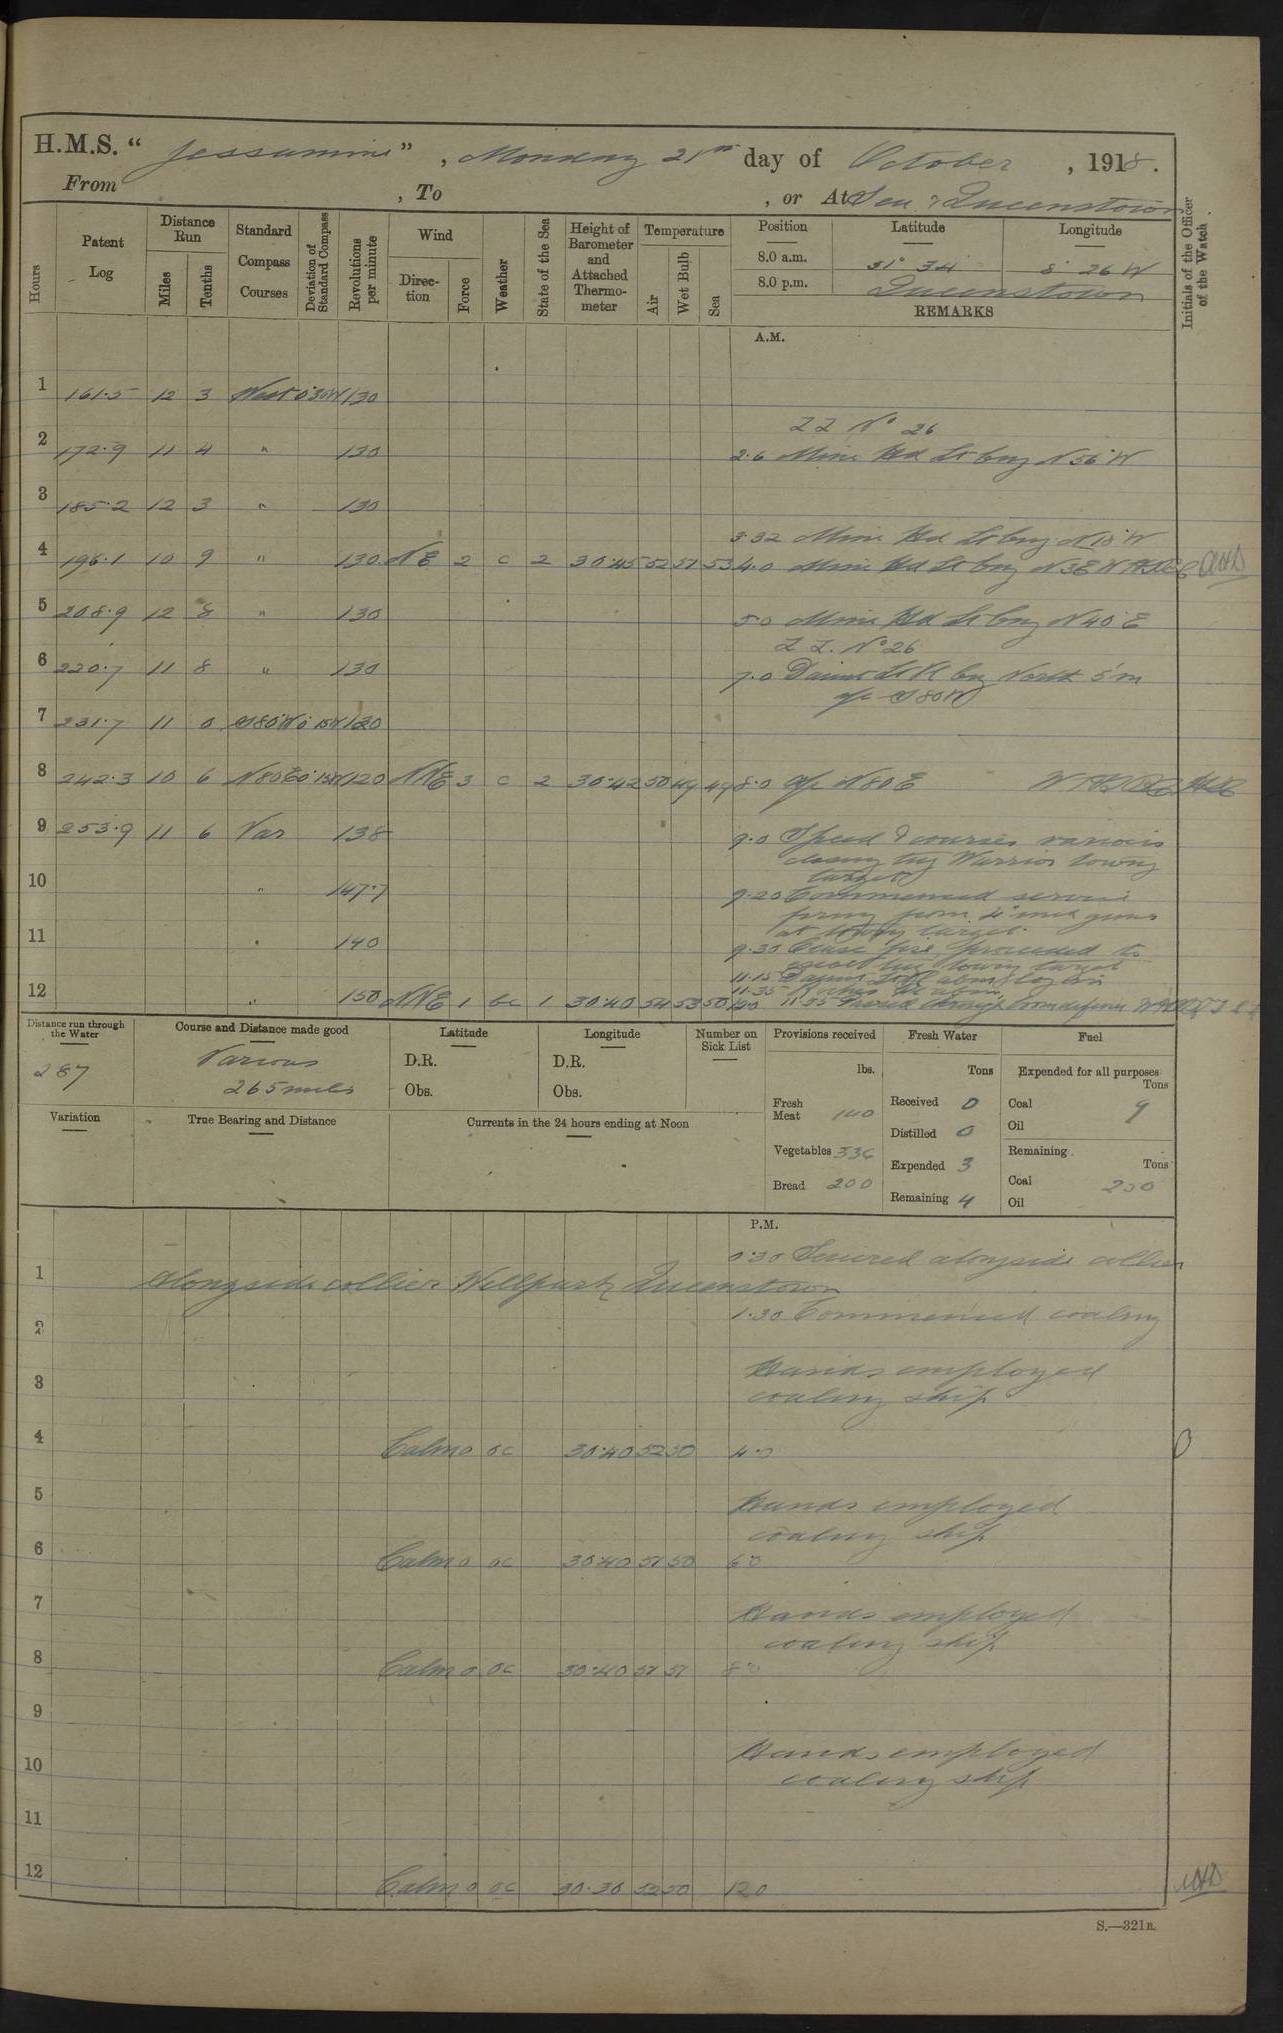 H.M.S. “ Jessamine ” , Monday 21st day of October , 1918 .
From , To , or At Sea & Queenstown
Hours
Patent Log
Distance Run
Miles
Tenths
Standard Compass Courses
Deviation of Standard Compass
Revolutions per minute
Wind
Direction
Force
Weather
State of the Sea
Height of Barometer and Attached Thermometer
Temperature
Air
Wet Bulb
Sea
Position
Latitude
Longitude
8.0 a.m. 51° 34' 8° 26 W
8.0 p.m. Queenstown
REMARKS
Initials of the Officer of the Watch.
A.M.
1 161.5 12 3 West 0°30W 130
ZZ No 26
2 172.9 11 4 " 130 2.6 Mine Hd Lt brg N 56°W
3 185.2 12 3 " 130
3.32 Mine Hd Lt brg N18°W
4 196.1 10 9 " 130 NE 2 c 2 30.45 52 51 53 4.0 Mine Hd Lt brg N3E
5 208.9 12 8 " 130 5.0 Mine Hd Lt brg N40°E
Z Z. No 26
6 220.7 11 8 " 130 7.0 Daunt Lt Vl brg North 5'm
a/c S80W
7 231.7 11 0 S80W 0°15W 120
8 242.3 10 6 N80E 0°15W 120 NNE 3 c 2 30.42 50 49 49 8.0 a/c N80E
9 253.9 11 6 Var 138 9.0 Speed & courses various
closing tug Warrior towing
target
10 " 147.7 9.20 Commenced
firing from 4 inch guns
at towing target.
11 " 140 9.30 Cease fire, proceeded to
escort tug towing target
11.15 Daunt Lt Vl abm
11.35
12 " 150 NNE 1 bc 1 30.40 54 53 50 12.0 11.55 Passed through boom defence
Distance run through the Water
287
Course and Distance made good
Various
265 miles
Latitude
D.R.
Obs.
Longitude
D.R.
Obs.
Number on Sick List
Provisions received
lbs.
Fresh Meat 140
Vegetables 336
Bread 200
Fresh Water
Tons
Received 0
Distilled 0
Expended 3
Remaining 4
Fuel
Expended for all purposes
Tons
Coal 9
Oil
Remaining
Tons
Coal 230
Oil
Variation
True Bearing and Distance
Currents in the 24 hours ending at Noon
P.M.
0.30 Secured alongside collier
1 Alongside collier Wellpark Queenstown
1.30 Commenced coaling
2
Hands employed
3 coaling ship
4 Calm 0 oc 30.40 52 50 4.0
5 Hands employed
coaling ship
6 Calm 0 oc 30.40 51 50 6.0
7 Hands employed
coaling ship
8 Calm 0 oc 30.40 51 51 8.0
9
Hands employed
10 coaling ship
11
12 Calm 0 oc 30.30 52 50 12.0
S.—321B.